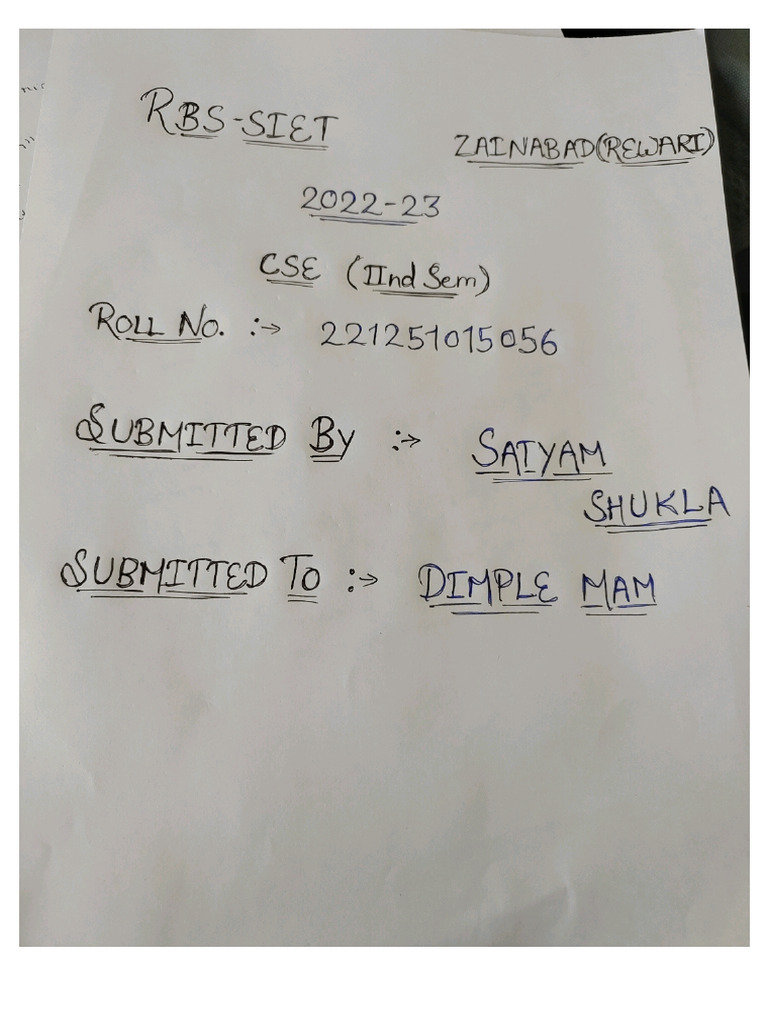 RBS-SIET
ZAINABAD(REWARI)
2022-23
CSE (IInd Sem)
ROLL NO. :→ 221251015056
SUBMITTED BY :→ SATYAM
SHUKLA
SUBMITTED TO :→ DIMPLE MAM